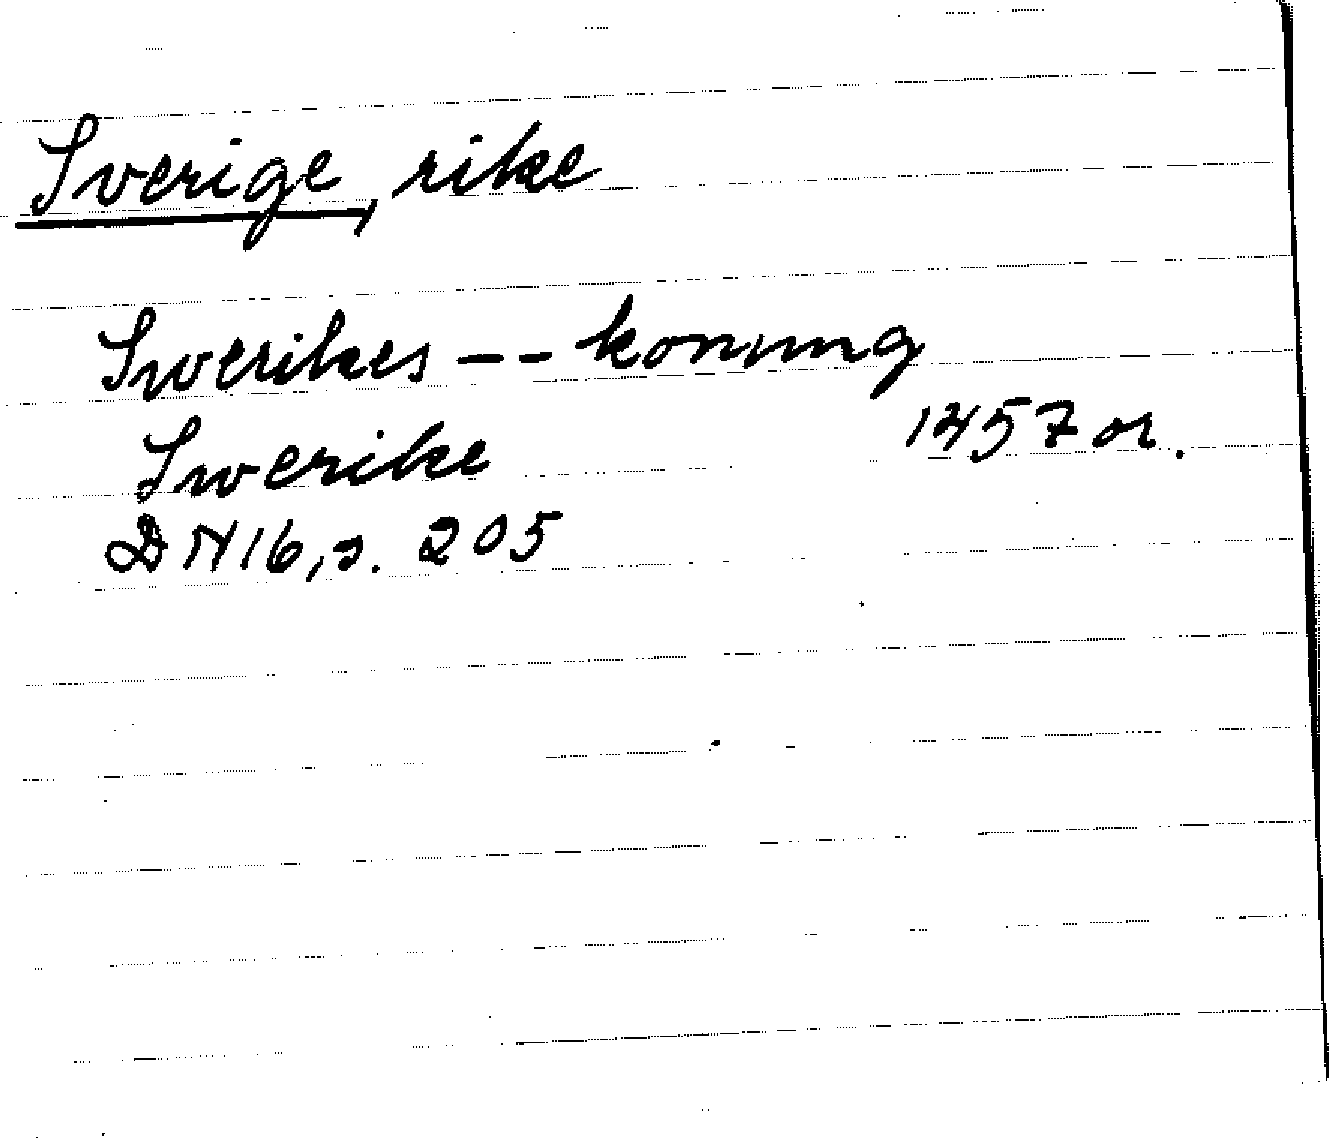 Sverige, rike
Swerikes -- konung
1457 or.
Swerike
DN 16, s. 205